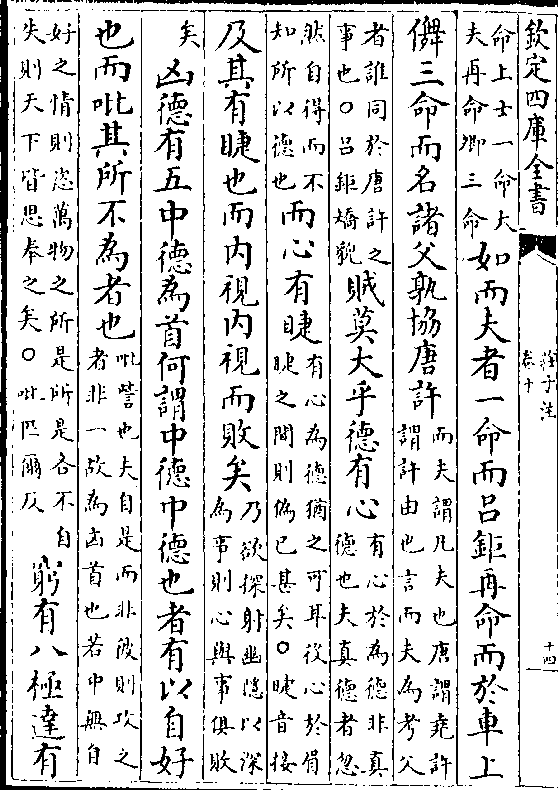 欽定四庫全書
莊子注
卷十
十四
命上士一命大夫再命卿三命如而夫者一命而呂鉅再命而於車上
儛三命而名諸父孰協唐許而夫謂凡夫也唐謂堯許謂許由也言而夫為考父
者誰同於唐許之事也○呂鉅矯貌賊莫大乎德有心有心於為德非真德也夫真德者忽
然自得而不知所以德也而心有睫有心為德猶之可耳役心於眉睫之間則偽已甚矣○睫音接
及其有睫也而内視内視而敗矣乃欲探射幽隱以深為事則心與事俱敗
矣凶德有五中德為首何謂中德中德也者有以自好
也而吡其所不為者也吡訾也夫自是而非彼則攻之者非一故為凶首也若中無自
好之情則恣萬物之所是所是各不自失則天下皆思奉之矣○吡匹爾反窮有八極達有